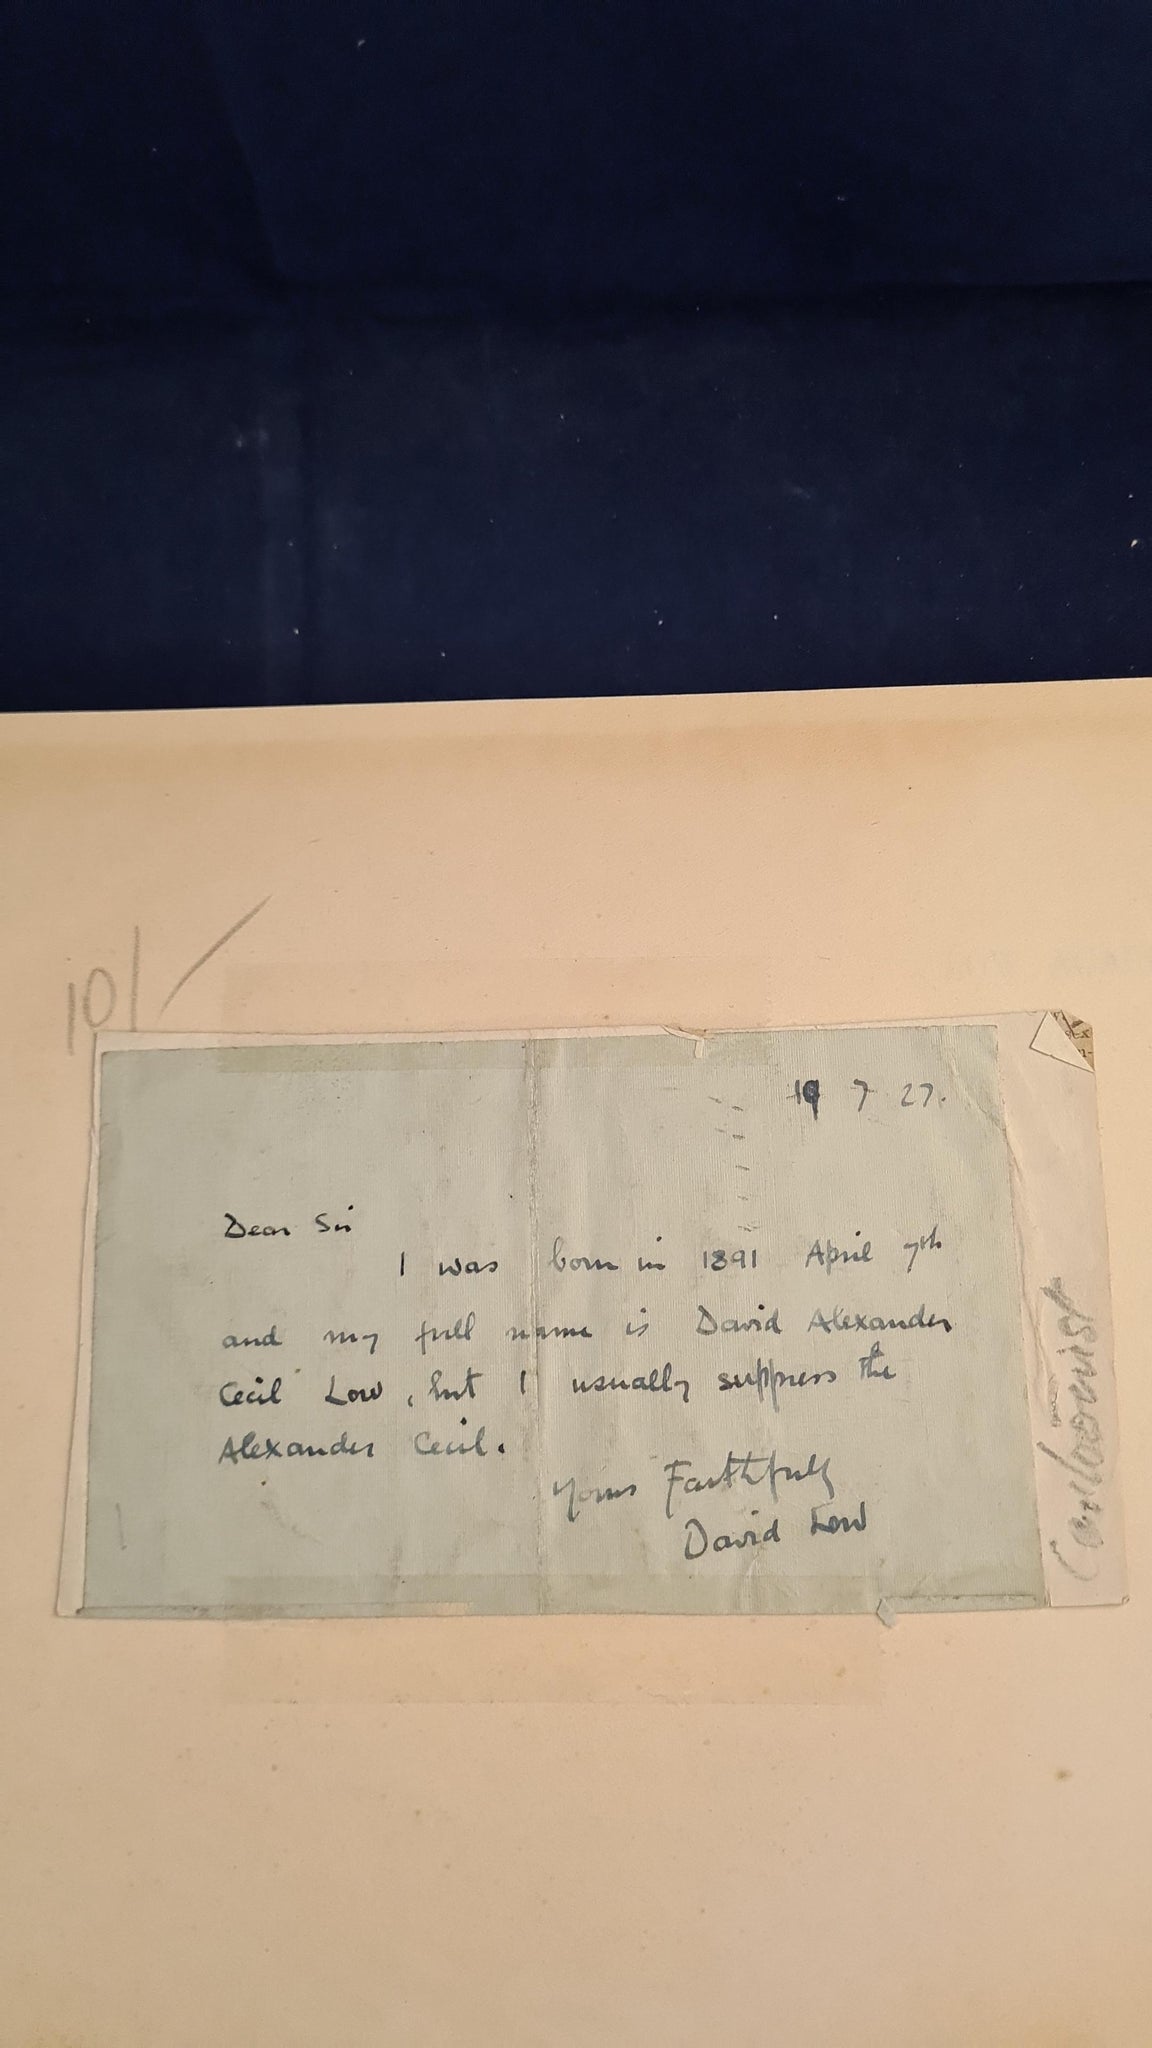 10/-
19 7 27.
Dear Sir
I was born in 1891 April 7th
and my full name is David Alexander
Cecil Low, but I usually suppress the
Alexander Cecil.
Yours Faithfully
David Low
Cartoonist